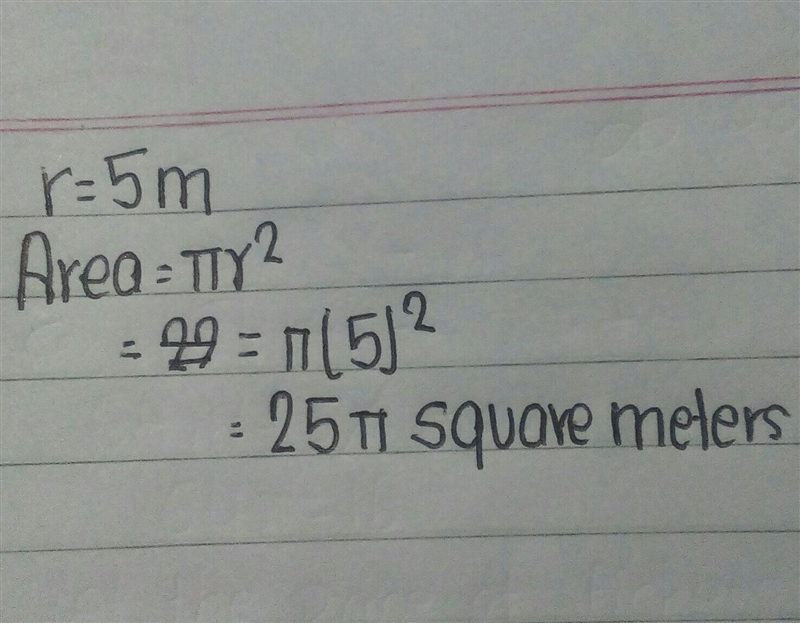 r=5m
Area=πr²
= = π(5)²
= 25π square meters